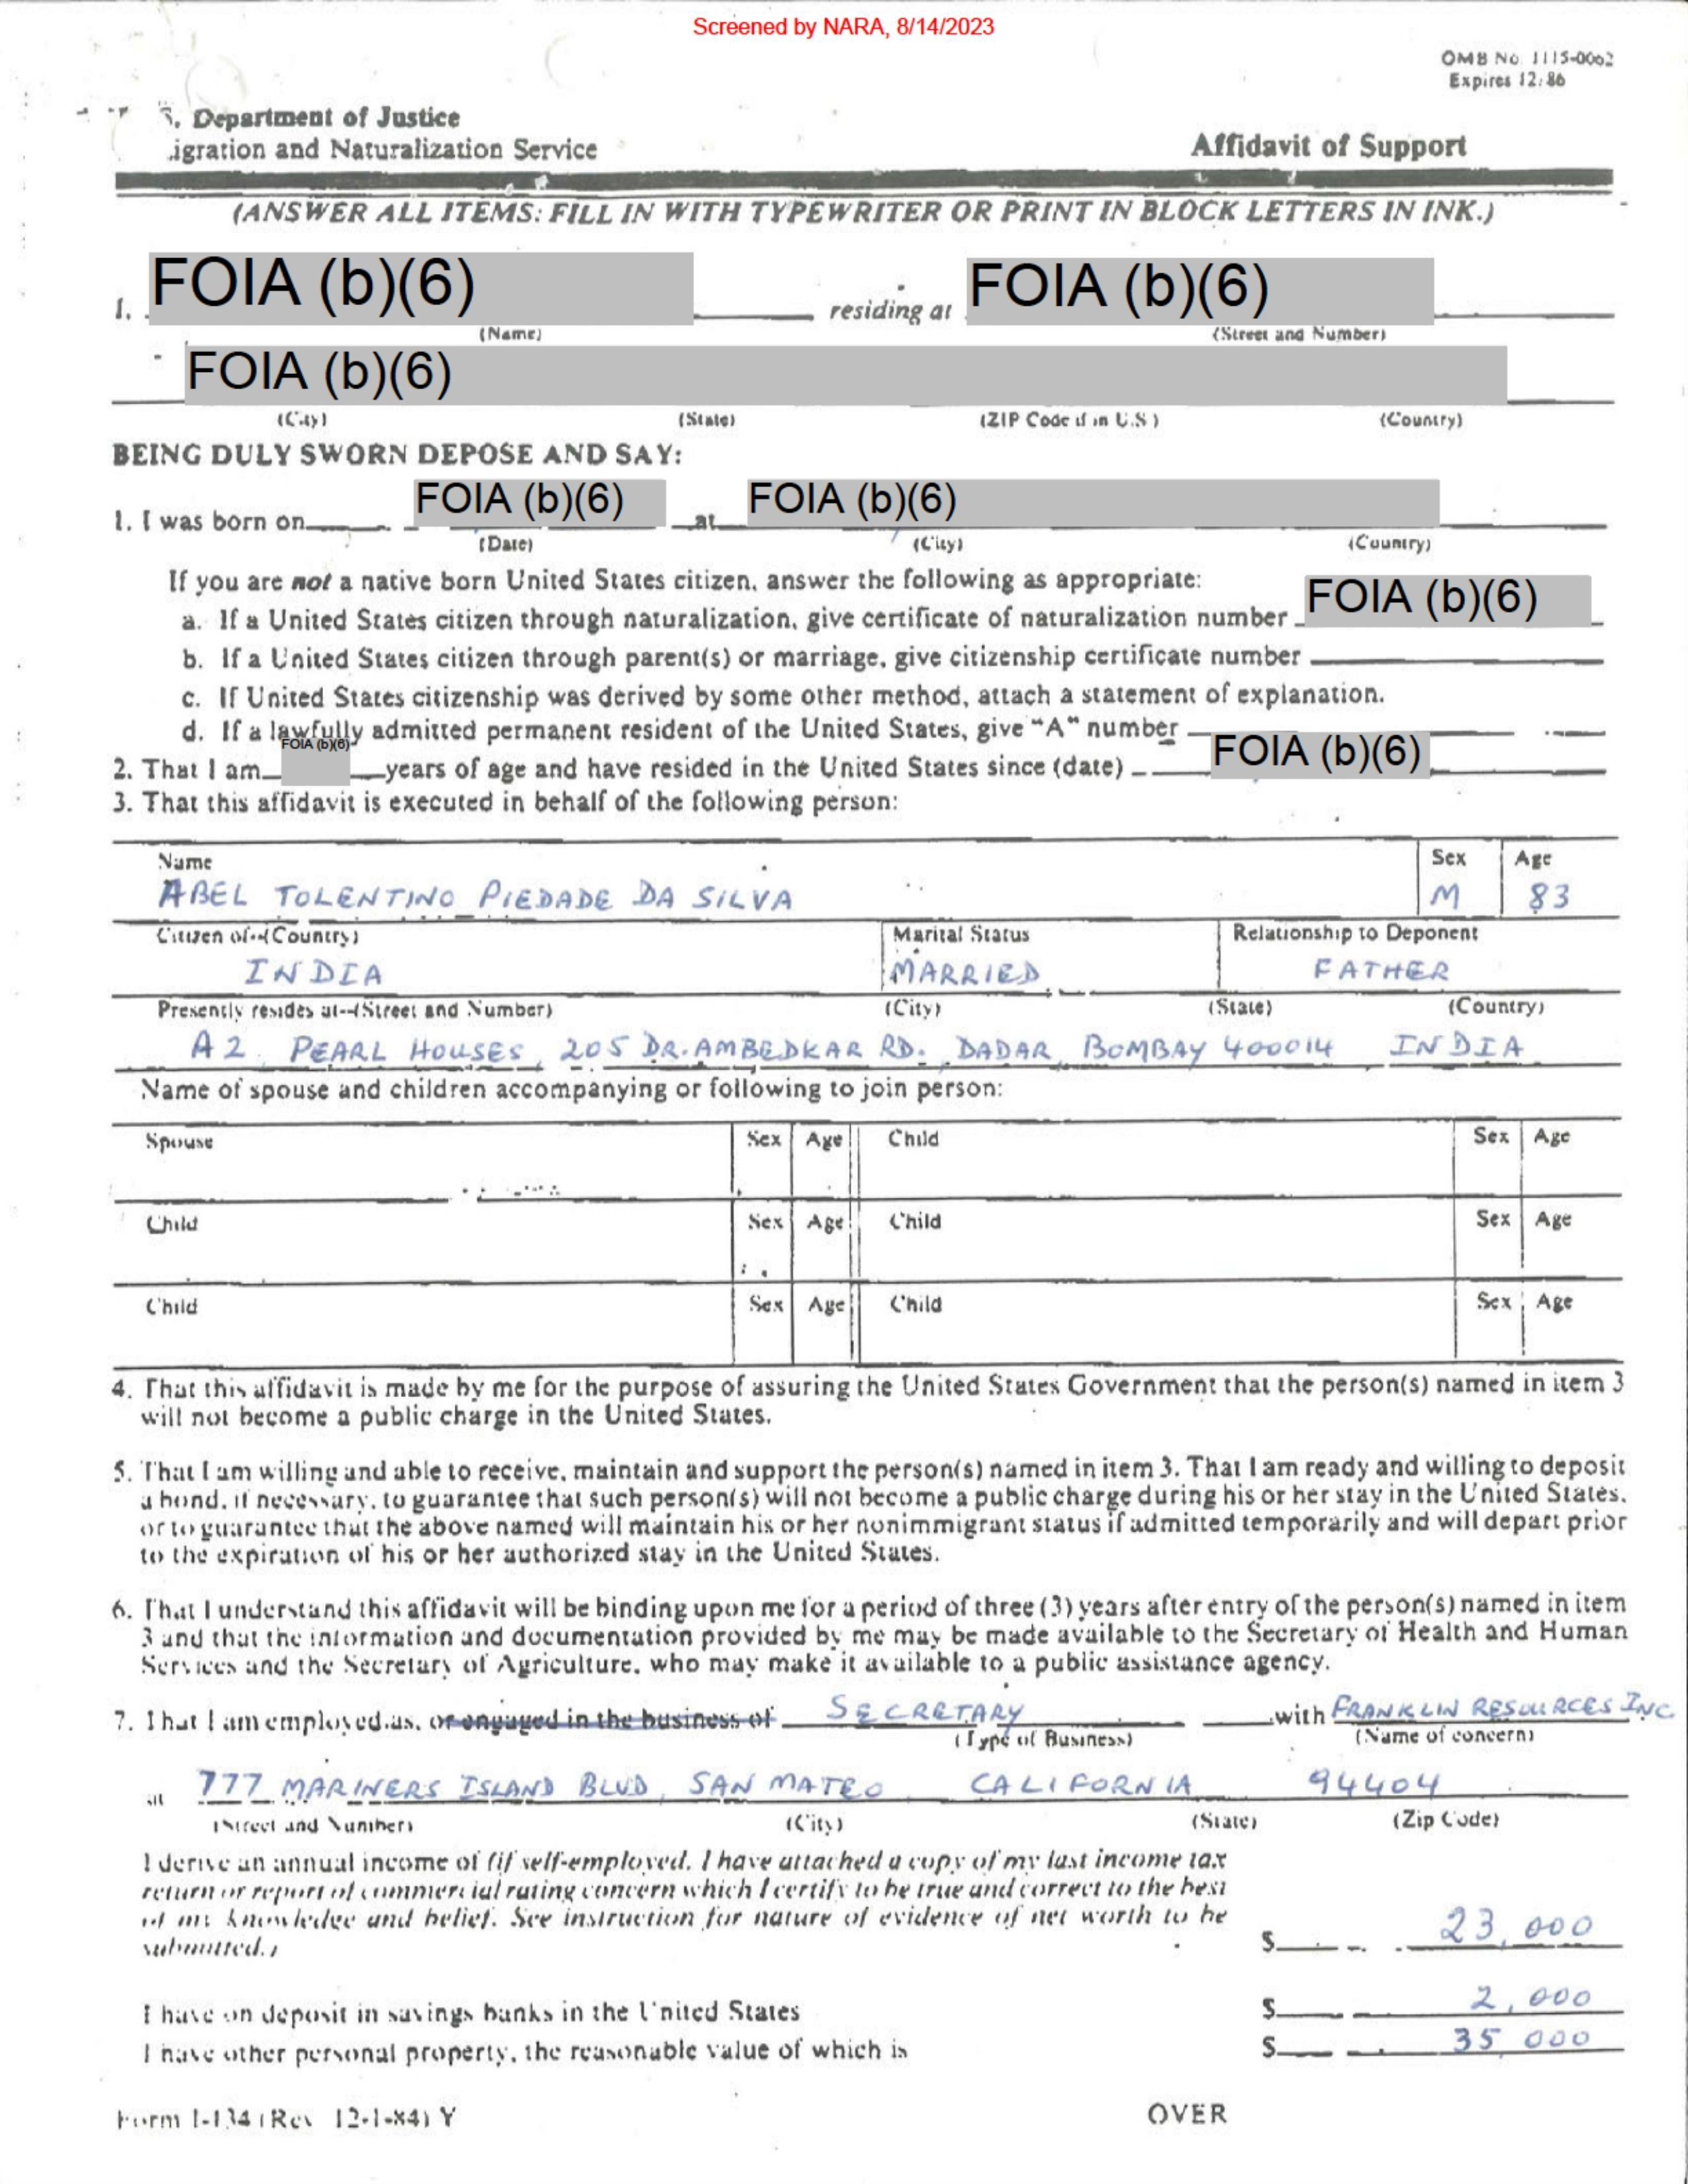 Screened by NARA, 8/14/2023
OMB No. 1115-0062
Expires 12/86
S. Department of Justice
igration and Naturalization Service
Affidavit of Support
(ANSWER ALL ITEMS: FILL IN WITH TYPEWRITER OR PRINT IN BLOCK LETTERS IN INK.)
I, FOIA (b)(6) residing at FOIA (b)(6)
(Name) (Street and Number)
FOIA (b)(6)
(City) (State) (ZIP Code if in U.S.) (Country)
BEING DULY SWORN DEPOSE AND SAY:
1. I was born on FOIA (b)(6) at FOIA (b)(6)
(Date) (City) (Country)
If you are not a native born United States citizen, answer the following as appropriate:
a. If a United States citizen through naturalization, give certificate of naturalization number FOIA (b)(6)
b. If a United States citizen through parent(s) or marriage, give citizenship certificate number
c. If United States citizenship was derived by some other method, attach a statement of explanation.
d. If a lawfully admitted permanent resident of the United States, give "A" number
2. That I am FOIA (b)(6) years of age and have resided in the United States since (date) FOIA (b)(6)
3. That this affidavit is executed in behalf of the following person:
Name Sex Age
ABEL TOLENTINO PIEDADE DA SILVA M 83
Citizen of--(Country) Marital Status Relationship to Deponent
INDIA MARRIED FATHER
Presently resides at--(Street and Number) (City) (State) (Country)
A2 PEARL HOUSES, 205 DR. AMBEDKAR RD. DADAR, BOMBAY 400014 INDIA
Name of spouse and children accompanying or following to join person:
Spouse Sex Age Child Sex Age
Child Sex Age Child Sex Age
Child Sex Age Child Sex Age
4. That this affidavit is made by me for the purpose of assuring the United States Government that the person(s) named in item 3
will not become a public charge in the United States.
5. That I am willing and able to receive, maintain and support the person(s) named in item 3. That I am ready and willing to deposit
a bond, if necessary, to guarantee that such person(s) will not become a public charge during his or her stay in the United States,
or to guarantee that the above named will maintain his or her nonimmigrant status if admitted temporarily and will depart prior
to the expiration of his or her authorized stay in the United States.
6. That I understand this affidavit will be binding upon me for a period of three (3) years after entry of the person(s) named in item
3 and that the information and documentation provided by me may be made available to the Secretary of Health and Human
Services and the Secretary of Agriculture, who may make it available to a public assistance agency.
7. That I am employed as, or engaged in the business of SECRETARY with FRANKLIN RESOURCES INC.
(Type of Business) (Name of concern)
at 777 MARINERS ISLAND BLVD, SAN MATEO CALIFORNIA 94404
(Street and Number) (City) (State) (Zip Code)
I derive an annual income of (if self-employed, I have attached a copy of my last income tax
return or report of commercial rating concern which I certify to be true and correct to the best
of my knowledge and belief. See instruction for nature of evidence of net worth to be
submitted.) $ 23,000
I have on deposit in savings banks in the United States $ 2,000
I have other personal property, the reasonable value of which is $ 35,000
Form I-134 (Rev. 12-1-84) Y OVER